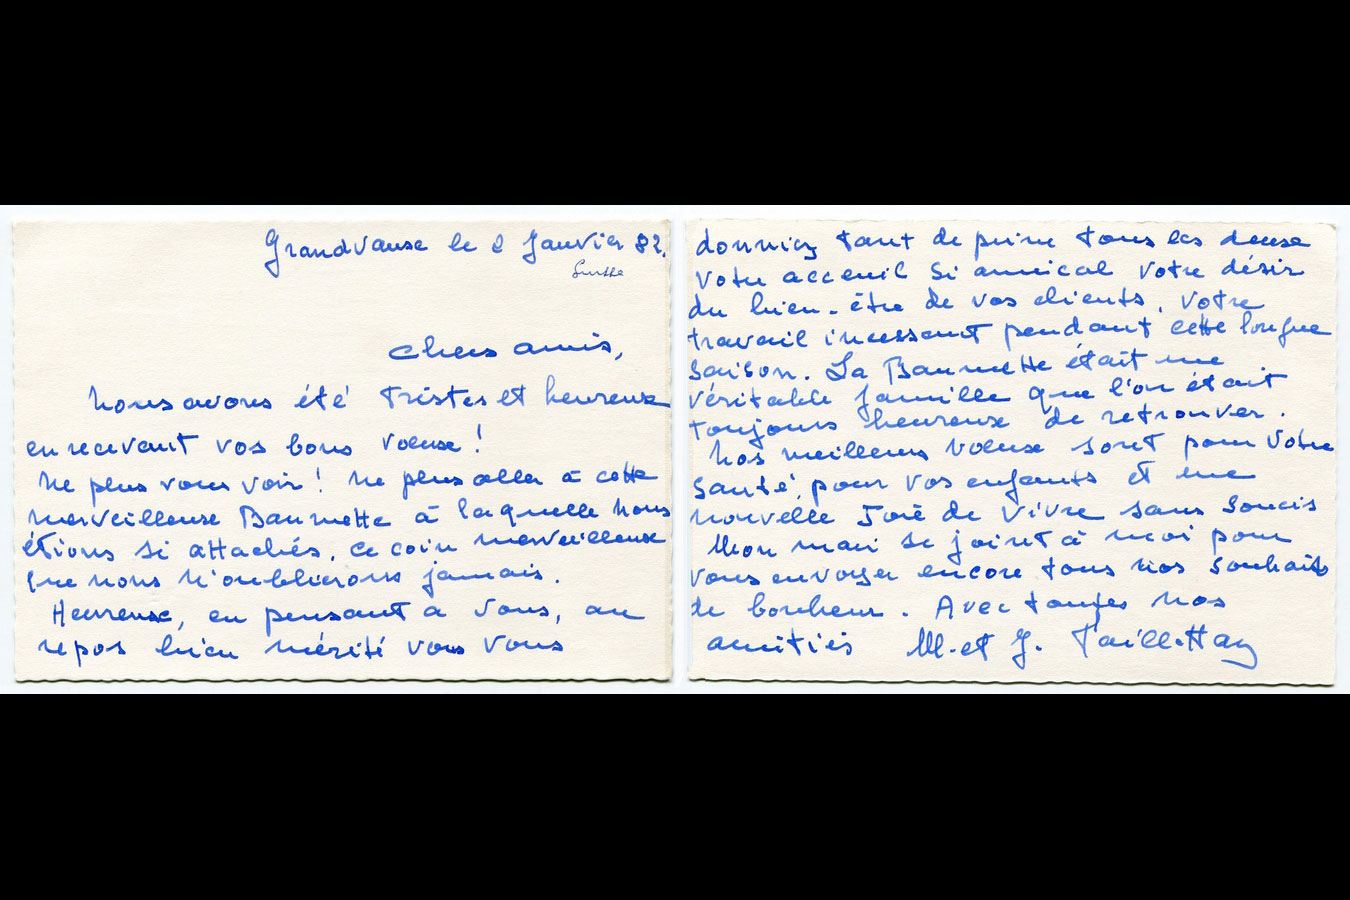 Grandvause le 2 Janvier 82.
Chers amis,
Nous avons été tristes et heureux
en recevant vos bons voeux !
Ne plus vous voir ! Ne plus aller à cette
merveilleuse Baumette à laquelle nous
étions si attachés, ce coin merveilleux
que nous n'oublierons jamais.
Heureux, en pensant à Vous, au
repos bien mérité vous Vous
donniez tant de peine tous les deux
Votre acceuil si amical votre désir
du bien-être de vos clients, votre
travail incessant pendant cette longue
saison. La Baumette était une
véritable famille que l'on était
toujours heureux de retrouver.
Nos meilleurs voeux sont pour votre
santé, pour vos enfants et une
nouvelle Joie de Vivre sans soucis
Mon mari se joint à moi pour
vous envoyer encore tous nos souhaits
de bonheur. Avec toutes nos
amitiés M. et J.